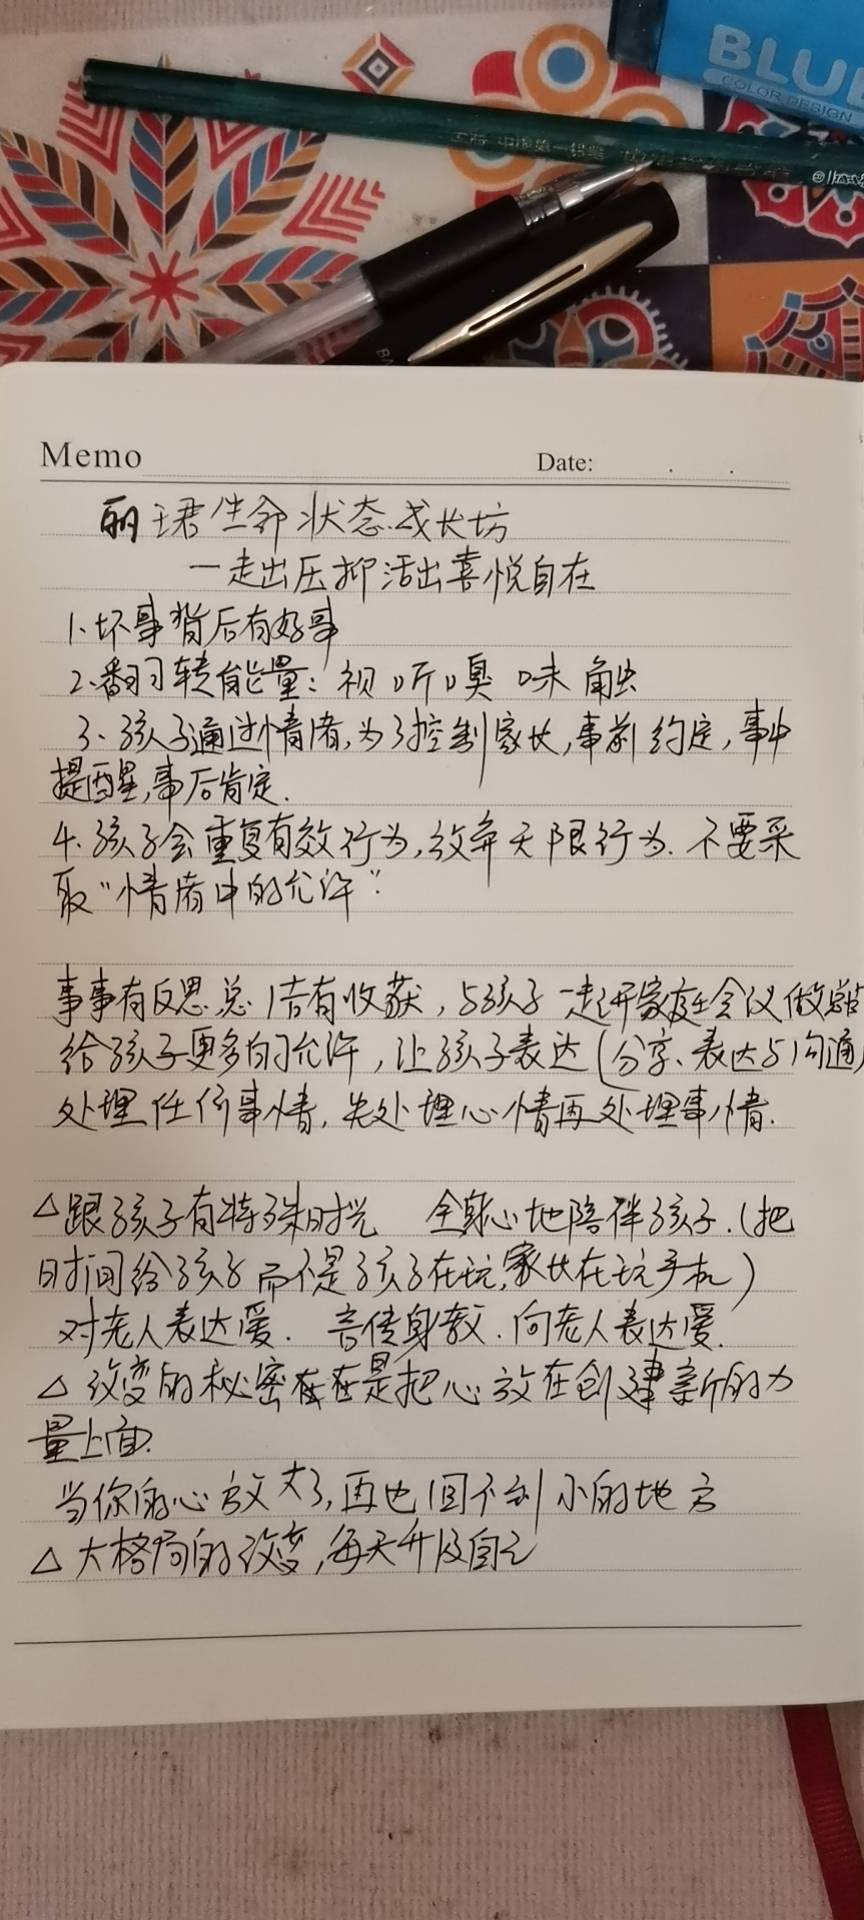 BLUE
COLOR DESIGN
中国第一铅笔
Memo
Date: . .
丽珺生命状态成长坊
一走出压抑活出喜悦自在
1、坏事背后有好事
2、翻习转能量：视 听 嗅 味 触
3、孩子通过情绪，为了控制家长，事前约定，事中
提醒，事后肯定.
4.孩子会重复有效行为，放弃无限行为.不要采
取“情绪中的允许”.
事事有反思总结有收获，与孩子一起开家庭会议做总结
给孩子更多的允许，让孩子表达(分享、表达与沟通)
处理任何事情，先处理心情再处理事情.
△跟孩子有特殊时光 全身心地陪伴孩子.(把
时间给孩子而不是孩子在玩,家长在玩手机)
对老人表达爱. 言传身教.向老人表达爱.
△改变的秘密在在是把心放在创建新的力
量上面.
当你的心放大了,再也回不到小的地方
△大格局的改变,每天升级自己